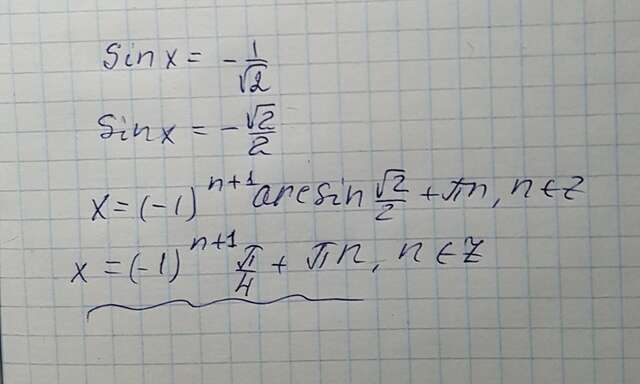 sin x = -1/√2
sin x = -√2/2
x = (-1)^(n+1) arcsin √2/2 + πn, n ∈ Z
x = (-1)^(n+1) π/4 + πn, n ∈ Z